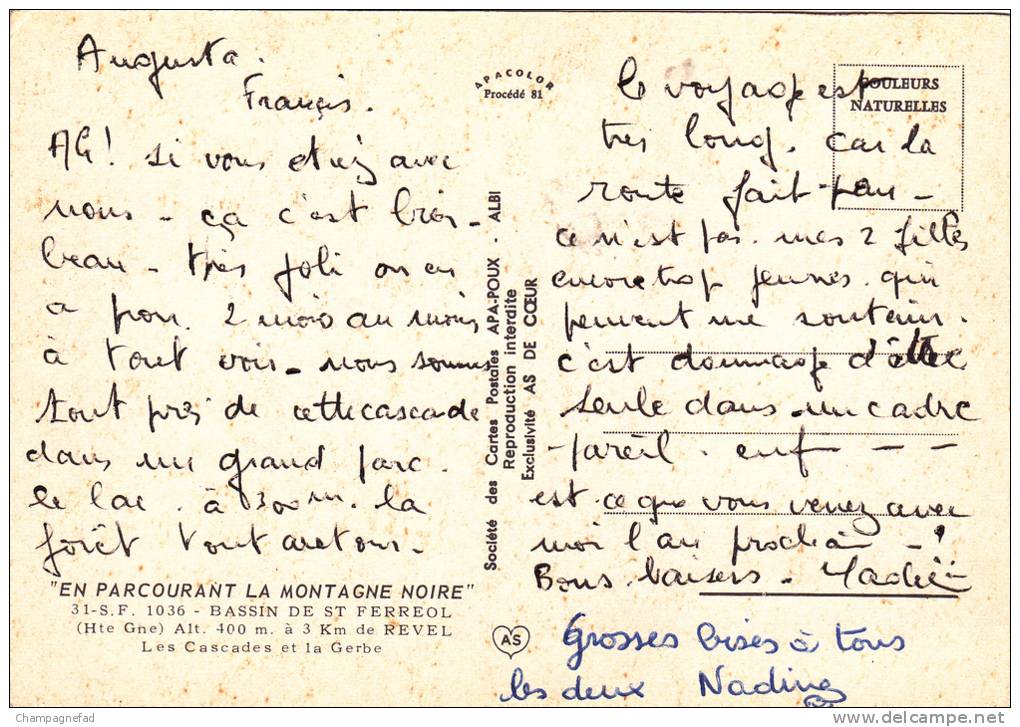 Augusta.
Français.
AG! si vous étiez avec
nous - ça c'est bien
beau - très joli on en
a pour 2 mois au moins
à tout voir - nous sommes
tout près de cette cascade
dans un grand parc.
le lac à 300m. la
forêt tout autour.
"EN PARCOURANT LA MONTAGNE NOIRE"
31-S.F. 1036 - BASSIN DE ST FERREOL
(Hte Gne) Alt. 400 m. à 3 Km de REVEL
Les Cascades et la Gerbe
APACOLOR
Procédé 81
Société des Cartes Postales APA-POUX - ALBI
Reproduction interdite
Exclusivité AS DE CŒUR
AS
COULEURS
NATURELLES
le voyage est
très long. car la
route fait peur -
ce n'est pas mes 2 filles
encore trop jeunes qui
peuvent me soutenir.
c'est dommage d'être
seule dans un cadre
pareil. enf - -
est ce que vous venez avec
moi l'an prochain - !
Bons baisers -
Grosses bises à tous
les deux Nadine
Champagnefad
delcampe.net